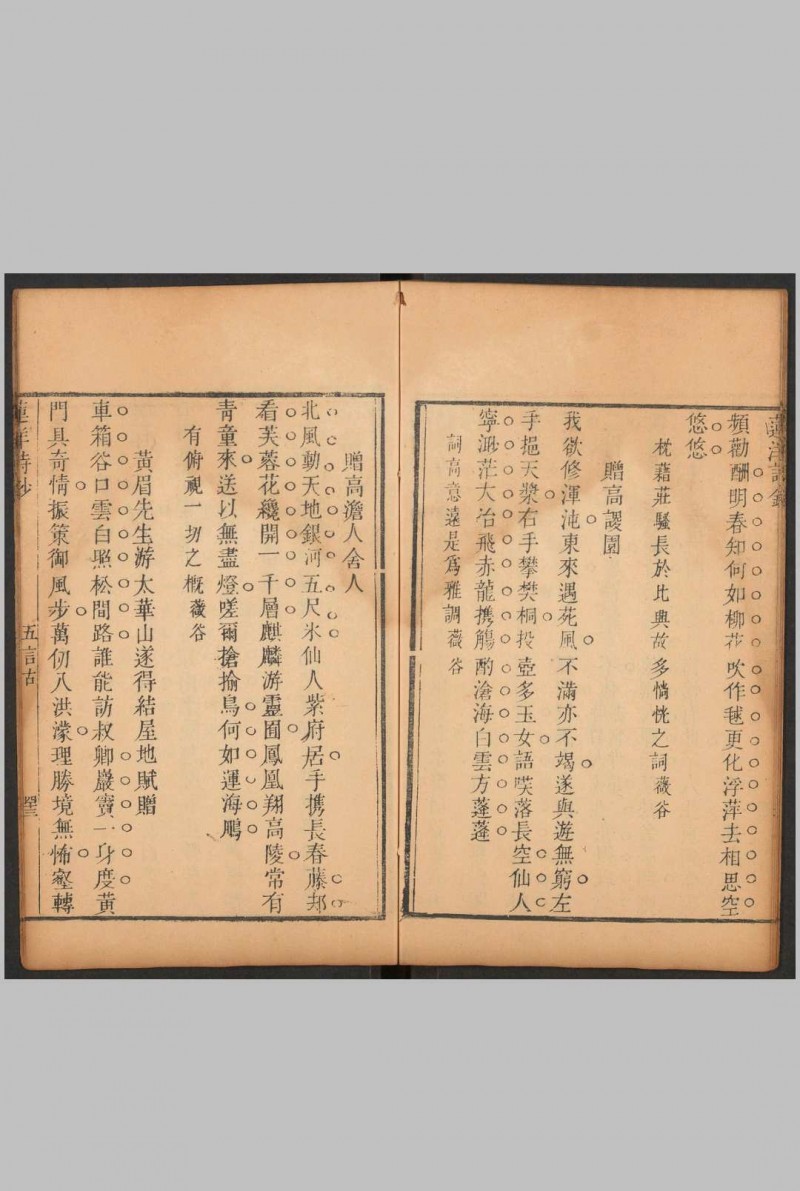 蓮洋詩鈔
頻勸酬明春知何如柳花吹作毬更化浮萍去相思空
悠悠
枕藉莊騷長於比興故多惝恍之詞薇谷
贈高謖園
我欲修渾沌東來遇苑風不滿亦不竭遂與遊無窮左
手挹天漿右手攀樊桐投壺多玉女語笑落長空仙人
寧渺茫大冶飛赤龍携觴酌滄海白雲方蓬蓬
詞高意遠是爲雅調薇谷
贈高澹人舍人
北風動天地銀河五尺氷仙人紫府居手携長春藤却
看芙蓉花纔開一千層麒麟游靈囿鳳凰翔高陵常有
青童來送以無盡燈嗟爾搶揄鳥何如運海鵬
有俯視一切之概薇谷
黃眉先生游太華山遂得結屋地賦贈
車箱谷口雲白照松間路誰能訪叔卿巖竇一身度黃
門具奇情振策御風步萬仞入洪濛理勝境無怖壑轉
蓮洋詩鈔
五言古